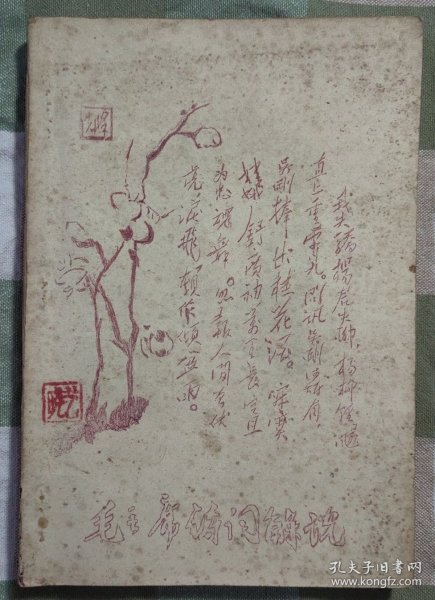 我失骄杨君失柳，杨柳轻飏
直上重霄九。问讯吴刚何所有
吴刚捧出桂花酒。寂寞
嫦娥舒广袖，万里长空且
为忠魂舞。忽报人间曾伏
虎，泪飞顿作倾盆雨。
毛主席诗词解说
孔夫子旧书网
www.kongfz.com